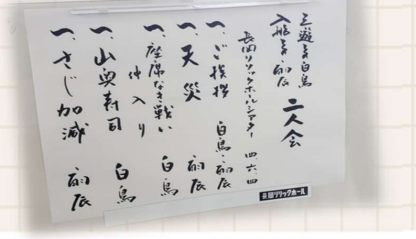 三遊亭白鳥
入船亭扇辰
二人会
長岡リリックホールシアター 四、六、四
一、ご挨拶 白鳥・扇辰
一、天災 扇辰
一、座席なき戦い 白鳥
仲入り
一、山奥寿司 白鳥
一、さじ加減 扇辰
長岡リリックホール